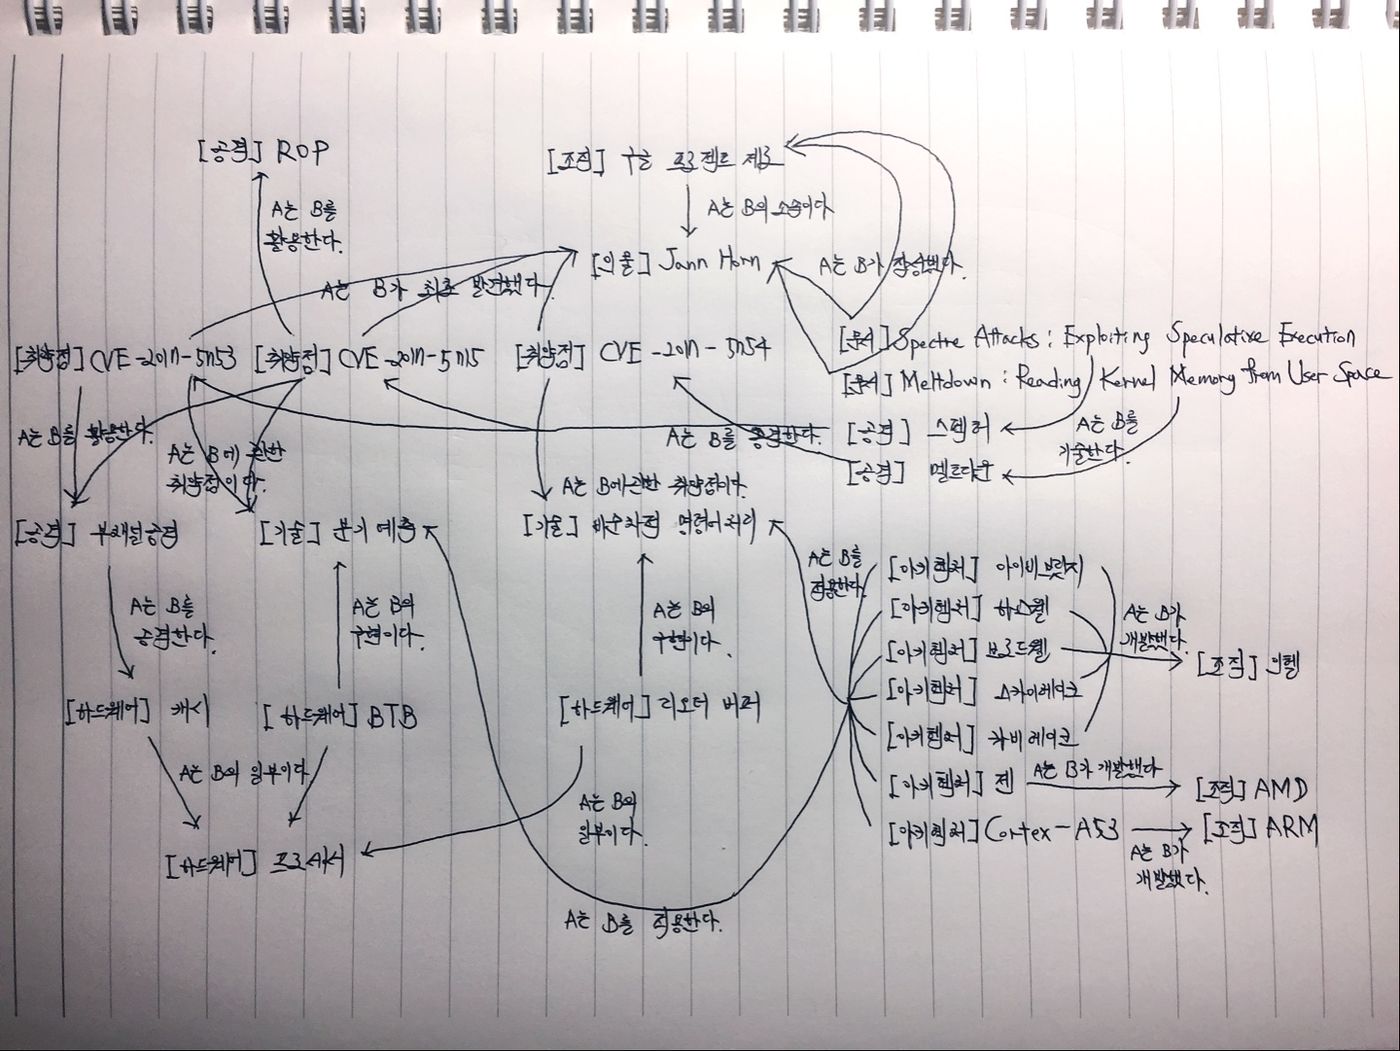 [공격] ROP
[조직] 구글 프로젝트 제로
A는 B를
활용한다.
A는 B의 소속이다.
[인물] Jann Horn
A는 B가 작성했다.
A는 B가 최초 발견했다.
[취약점] CVE-2017-5753
[취약점] CVE-2017-5715
[취약점] CVE-2017-5754
[문서] Spectre Attacks: Exploiting Speculative Execution
[문서] Meltdown: Reading Kernel Memory from User Space
A는 B를 활용한다.
A는 B에 관한
취약점이다.
A는 B를 공격한다.
[공격] 스펙터
[공격] 멜트다운
A는 B를
기술한다.
A는 B에 관한 취약점이다.
[공격] 부채널공격
[기술] 분기 예측
[기술] 비순차적 명령어 처리
A는 B를
적용한다.
[아키텍처] 아이비브릿지
[아키텍처] 하스웰
[아키텍처] 브로드웰
[아키텍처] 스카이레이크
[아키텍처] 카비레이크
[아키텍처] 젠
[아키텍처] Cortex-A53
A는 B가
개발했다.
[조직] 인텔
A는 B가 개발했다
[조직] AMD
[조직] ARM
A는 B가
개발했다.
A는 B를
공격한다.
A는 B의
구현이다.
A는 B의
구현이다.
[하드웨어] 캐시
[하드웨어] BTB
[하드웨어] 리오더 버퍼
A는 B의 일부이다
A는 B의
일부이다.
[하드웨어] 프로세서
A는 B를 적용한다.